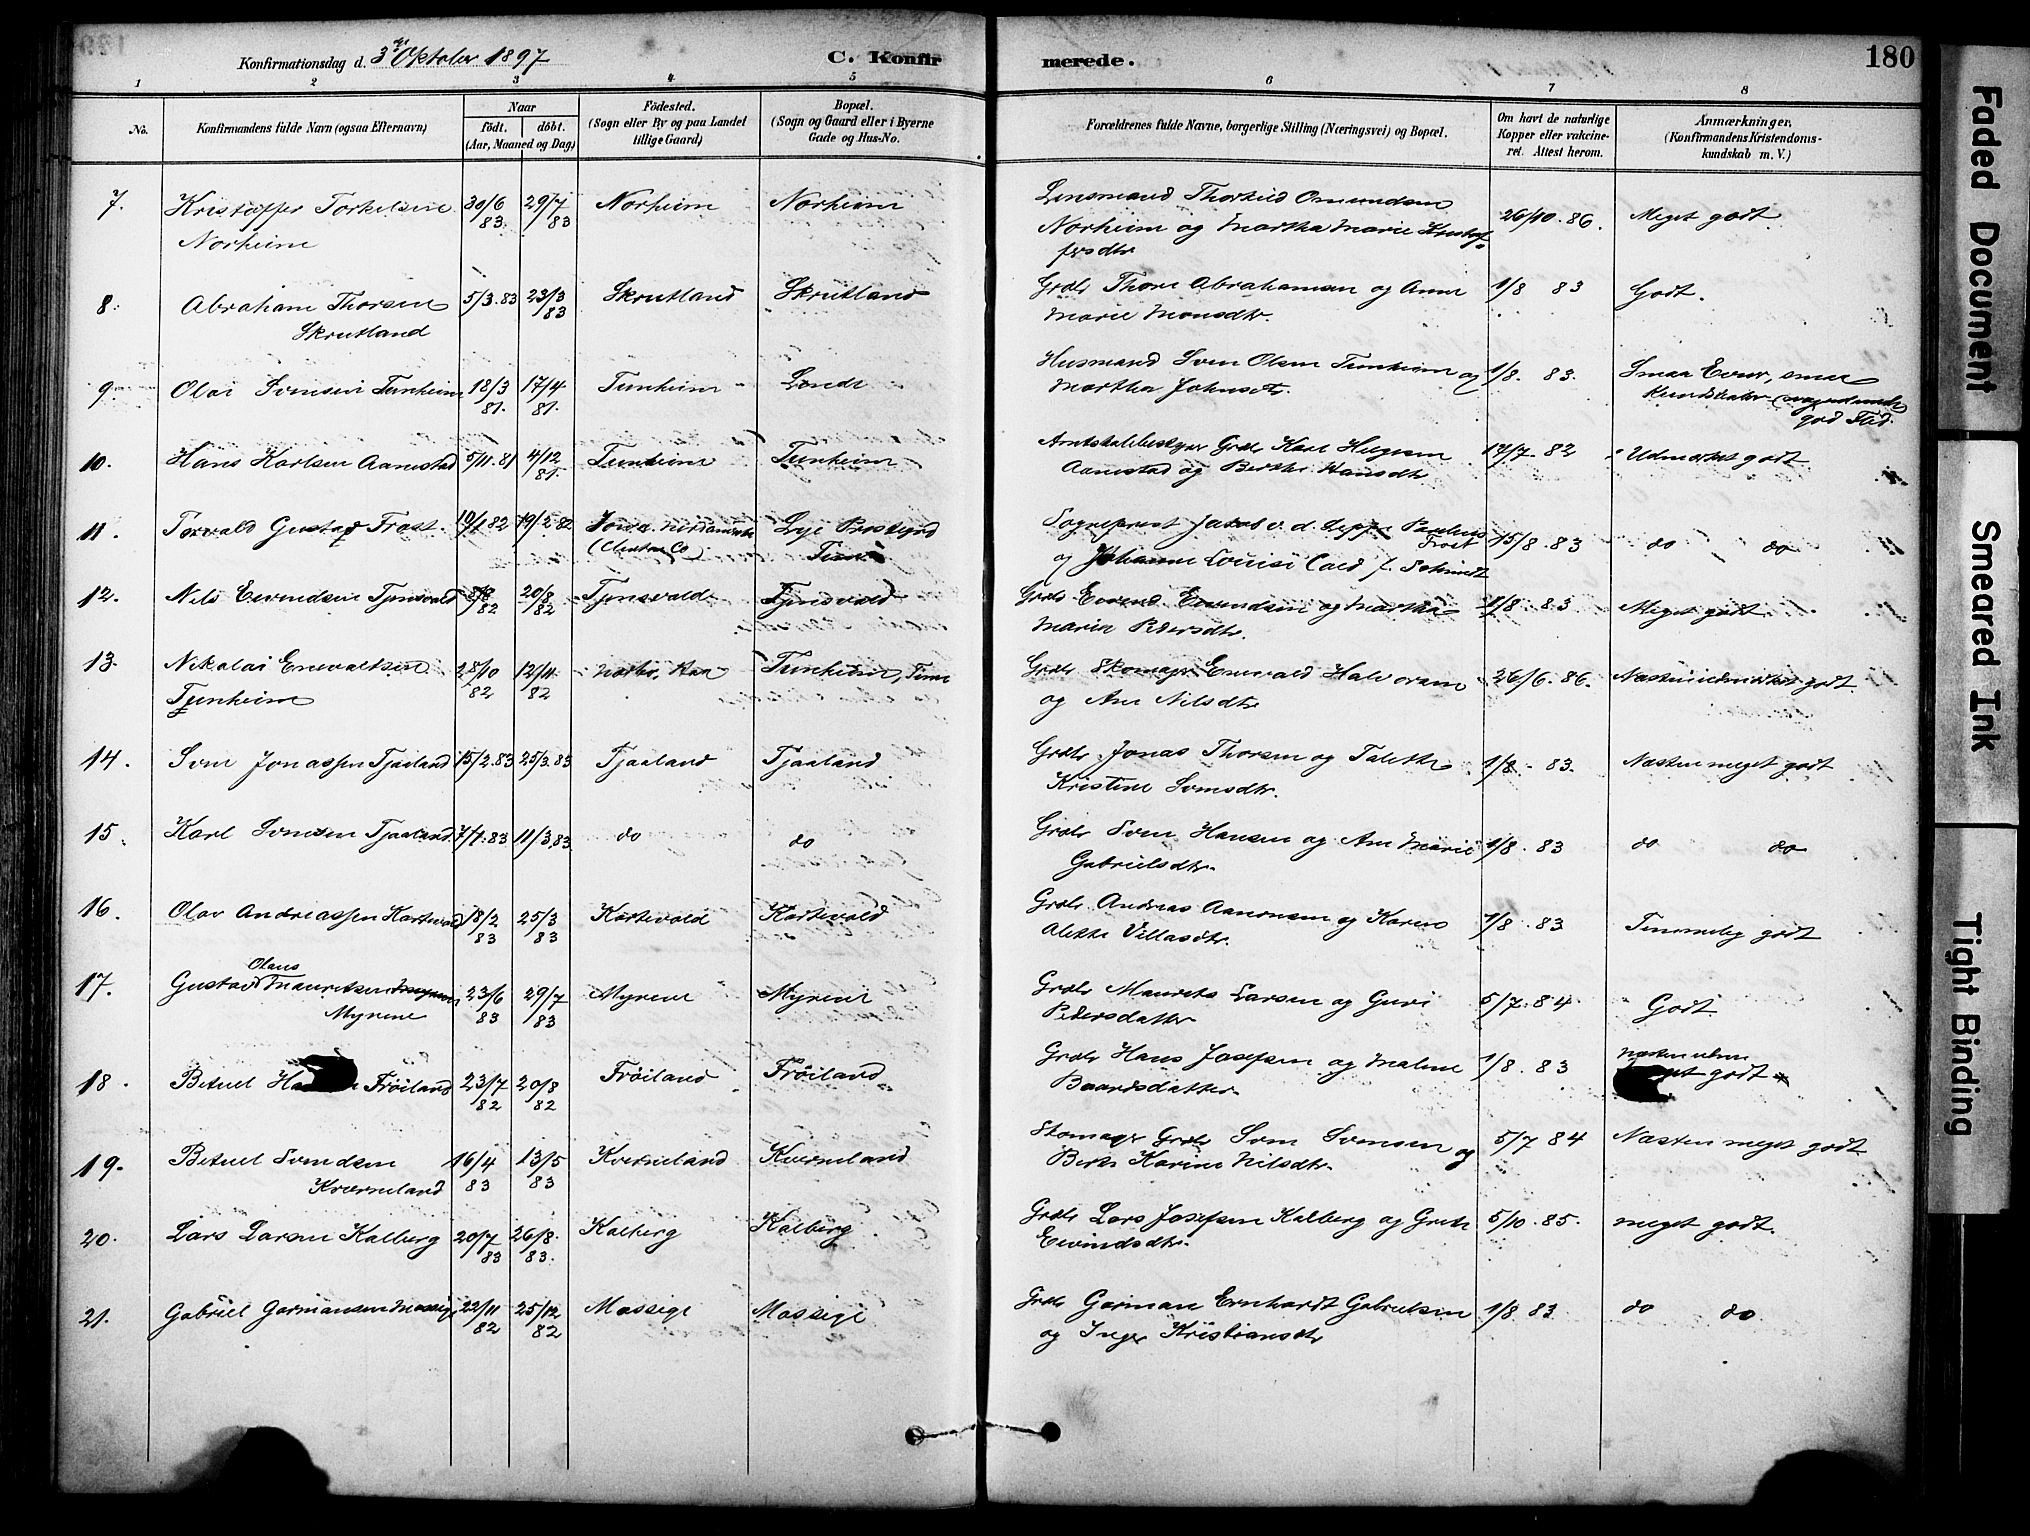 Konfirmationsdag d. 3die Oktober 1897
C. Konfir merede. 180
1 2 3 4 5 6 7 8
No.
Konfirmandens fulde Navn (ogsaa Efternavn)
Naar
födt. döbt.
(Aar, Maaned og Dag)
Födested.
(Sogn eller By og paa Landet
tillige Gaard)
Bopæl.
(Sogn og Gaard eller i Byerne
Gade og Hus-No.
Forældrenes fulde Navne, borgerlige Stilling (Næringsvei) og Bopæl.
Om havt de naturlige
Kopper eller vakcine-
ret. Attest herom.
Anmærkninger.
(Konfirmandens Kristendoms-
kundskab m. V.)
7. Kristoffer Torkelsen 30/6 29/7 Norheim Norheim Lensmand Thorkild Omundsen 26/10. 86. Meget godt
Norheim 83. 83 Norheim og Martha Marie Kristof-
fersdtr
8. Abraham Thorsen 5/3. 83 23/3 Skrutland Skrutland Grdbr Thore Abrahamsen og Anne 1/8 83 Godt.
Skrutland 83 Marie Monsdtr.
9. Olai Svensen Tunheim 18/3 17/4 Tunheim Lende Husmand Sven Olsen Tunheim og 1/8. 83. Smaa Evner, smaa
81. 81. Martha Johnsdtr. Kundskaber
god Flid.
10. Hans Karlsen Aanestad 5/11. 81 4/12 Tunheim Tunheim Grdbr Karl Helgesen 17/7. 82 Udmerket godt
81. Aanestad og Berthe Hansdtr
11. Torvald Gustav Frost. 82 19/2. 82 Iowa. Nordamerika Lye Prestegrd Sogneprest Jakob v. d. Lippe Paulus 15/8. 83 do do
(Clinton Co) Time Frost
og Johanne Louise Card f. Schmidt
12. Nils Eevindsen Tjensvold 8/8 20/8 Tjensvold Tjensvold Grdbr Eevind Eevindsen og Martha 1/8 83 Meget godt
82 82 Maria Pedersdtr.
13. Nikolai Enevaldsen 28/10 12/11 Tunheim, Time Grdbr Skomager Enevald Halvorsen 26/6. 86. Næsten udmerket godt
Tjenheim 82 82 og Ane Nilsdtr
14. Sven Jonassen Tjaaland 15/2. 83 25/3. 83 Tjaaland Tjaaland Grdbr Jonas Thorsen og Talette 1/8 - 83. Næsten meget godt
Kristine Svensdtr.
15. Karl Svensen Tjaaland 7/1. 83 11/3. 83 do do Grdbr Sven Hansen og Ane Marie 1/8. 83 do do
Gabrielsdtr.
16. Olav Andreassen Kartevold 18/2 25/3 Kartevold Kartevold Grdbr Andreas Aanensen og Karen 1/8. 83 Temmelig godt
83 83 Alette Villasdtr.
Olaus
17. Gustav Mauritsen 23/6 29/7 Myrene Myrene Grdbr Maurits Larsen og Guri 5/7. 84 Godt.
Myrene 83 83 Pedersdatter
18. Betuel Ha Frøiland 23/7 20/8 Frøiland Frøiland Grdbr Hans Josefsen og Malene 1/8. 83 næsten
82 82 Baardsdatter. godt
19. Betuel Svendsen 16/4 13/5 Kverneland Kverneland Skomager Grdbr Sven Svensen og 5/7 84 Næsten meget godt
Kverneland 83 83 Berte Karine Nilsdtr.
20. Lars Larsen Kalberg 20/7 26/8. Kalberg Kalberg Grdbr Lars Josefsen Kalberg og Grete 5/10. 85. meget godt.
83 83. Eevindsdtr.
21. Gabriel Gormansen Mossige 22/11 25/12 Mossige Mossige Grdbr Gorman Ernhardt Gabrielsen 1/8. 83 do do
82 82 og Inger Kristiansdtr
Faded Document
Smeared Ink
Tight Binding